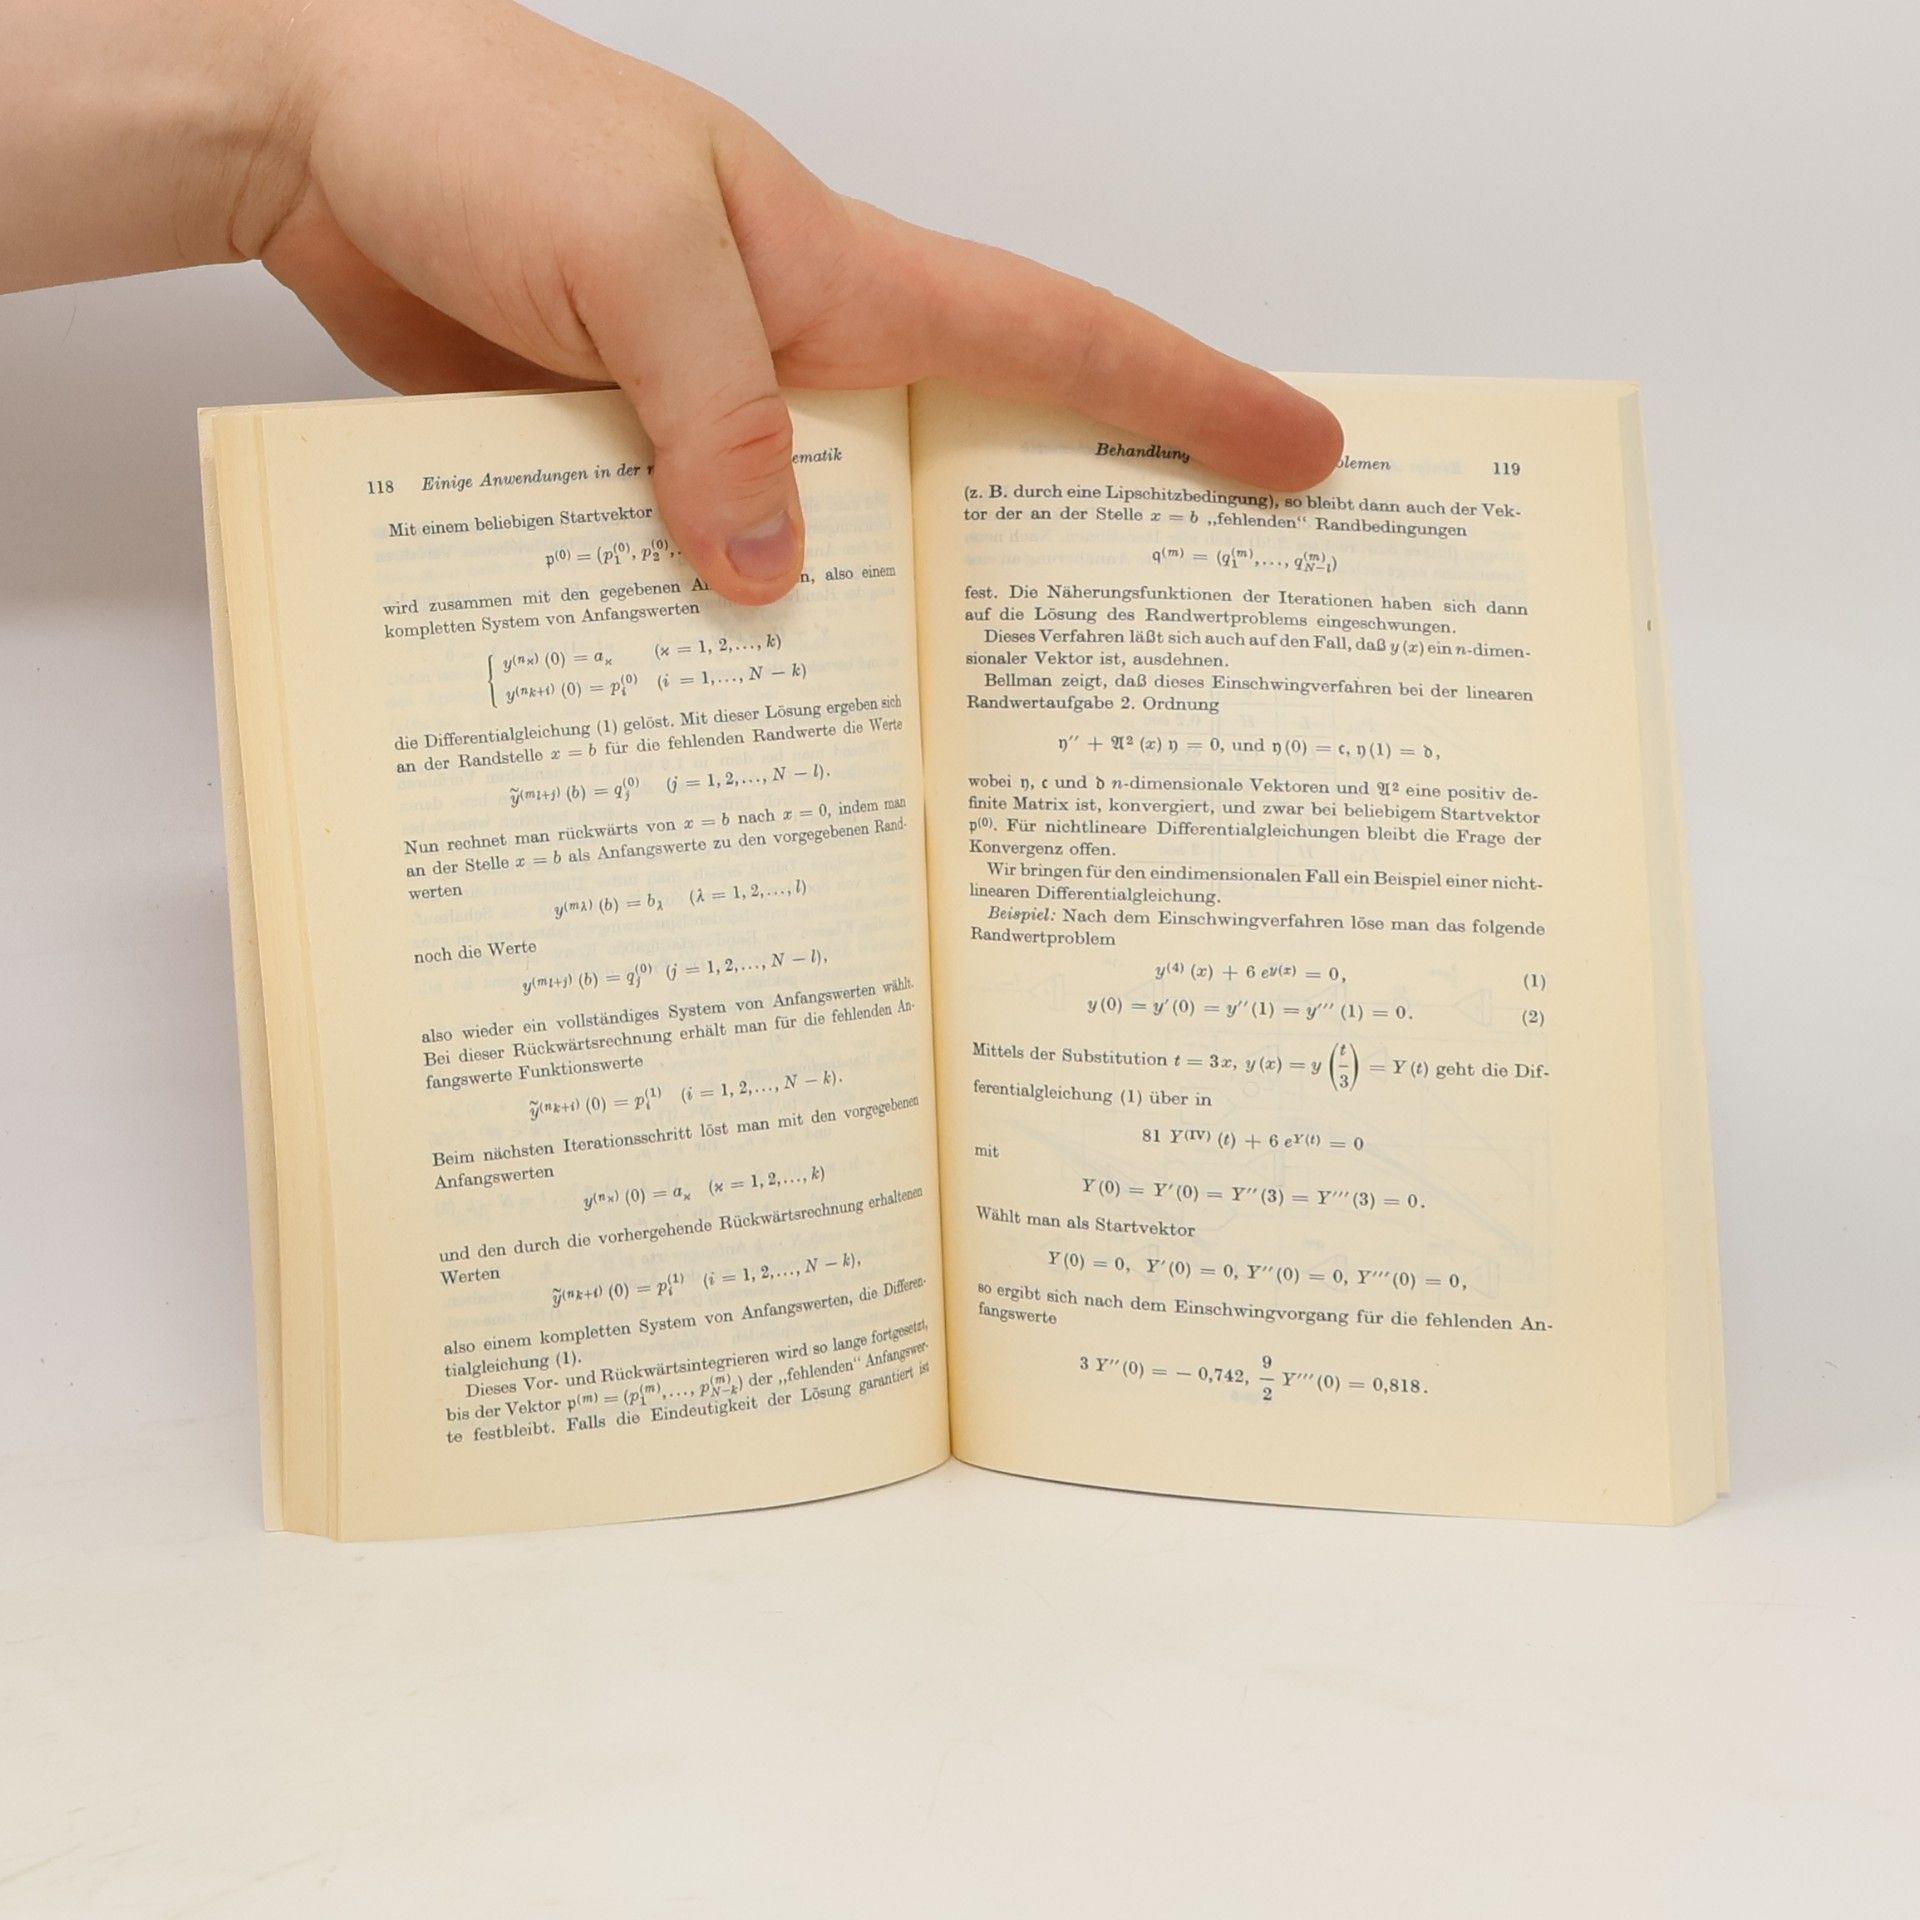 118 Einige Anwendungen in der ematik
Mit einem beliebigen Startvektor
p⁽⁰⁾ = (p₁⁽⁰⁾, p₂⁽⁰⁾,
wird zusammen mit den gegebenen n, also einem
kompletten System von Anfangswerten
{ y⁽ⁿϰ⁾ (0) = aϰ (ϰ = 1, 2,..., k)
y⁽ⁿk+i⁾ (0) = pᵢ⁽⁰⁾ (i = 1,..., N − k)
die Differentialgleichung (1) gelöst. Mit dieser Lösung ergeben sich
an der Randstelle x = b für die fehlenden Randwerte die Werte
ỹ⁽ᵐl+j⁾ (b) = qⱼ⁽⁰⁾ (j = 1, 2,..., N − l).
Nun rechnet man rückwärts von x = b nach x = 0, indem man
an der Stelle x = b als Anfangswerte zu den vorgegebenen Rand-
werten
y⁽ᵐλ⁾ (b) = bλ (λ = 1, 2,..., l)
noch die Werte
y⁽ᵐl+j⁾ (b) = qⱼ⁽⁰⁾ (j = 1, 2,..., N − l),
also wieder ein vollständiges System von Anfangswerten wählt.
Bei dieser Rückwärtsrechnung erhält man für die fehlenden An-
fangswerte Funktionswerte
ỹ⁽ⁿk+i⁾ (0) = pᵢ⁽¹⁾ (i = 1, 2,..., N − k).
Beim nächsten Iterationsschritt löst man mit den vorgegebenen
Anfangswerten
y⁽ⁿϰ⁾ (0) = aϰ (ϰ = 1, 2,..., k)
und den durch die vorhergehende Rückwärtsrechnung erhaltenen
Werten
ỹ⁽ⁿk+i⁾ (0) = pᵢ⁽¹⁾ (i = 1, 2,..., N − k),
also einem kompletten System von Anfangswerten, die Differen-
tialgleichung (1).
Dieses Vor- und Rückwärtsintegrieren wird so lange fortgesetzt,
bis der Vektor p⁽ᵐ⁾ = (p₁⁽ᵐ⁾,..., p_{N−k}⁽ᵐ⁾) der „fehlenden“ Anfangswer-
te festbleibt. Falls die Eindeutigkeit der Lösung garantiert ist
Behandlung blemen 119
(z. B. durch eine Lipschitzbedingung), so bleibt dann auch der Vek-
tor der an der Stelle x = b „fehlenden“ Randbedingungen
q⁽ᵐ⁾ = (q₁⁽ᵐ⁾,..., q_{N−l}⁽ᵐ⁾)
fest. Die Näherungsfunktionen der Iterationen haben sich dann
auf die Lösung des Randwertproblems eingeschwungen.
Dieses Verfahren läßt sich auch auf den Fall, daß y (x) ein n-dimen-
sionaler Vektor ist, ausdehnen.
Bellman zeigt, daß dieses Einschwingverfahren bei der linearen
Randwertaufgabe 2. Ordnung
𝔶′′ + 𝔄² (x) 𝔶 = 0, und 𝔶 (0) = 𝔠, 𝔶 (1) = 𝔡,
wobei 𝔶, 𝔠 und 𝔡 n-dimensionale Vektoren und 𝔄² eine positiv de-
finite Matrix ist, konvergiert, und zwar bei beliebigem Startvektor
p⁽⁰⁾. Für nichtlineare Differentialgleichungen bleibt die Frage der
Konvergenz offen.
Wir bringen für den eindimensionalen Fall ein Beispiel einer nicht-
linearen Differentialgleichung.
Beispiel: Nach dem Einschwingverfahren löse man das folgende
Randwertproblem
y⁽⁴⁾ (x) + 6 e^{y(x)} = 0, (1)
y (0) = y′ (0) = y′′ (1) = y′′′ (1) = 0. (2)
Mittels der Substitution t = 3x, y (x) = y (t/3) = Y (t) geht die Dif-
ferentialgleichung (1) über in
81 Y^{(IV)} (t) + 6 e^{Y(t)} = 0
mit
Y (0) = Y′ (0) = Y′′ (3) = Y′′′ (3) = 0.
Wählt man als Startvektor
Y (0) = 0, Y′ (0) = 0, Y′′ (0) = 0, Y′′′ (0) = 0,
so ergibt sich nach dem Einschwingvorgang für die fehlenden An-
fangswerte
3 Y′′ (0) = − 0,742, 9/2 Y′′′ (0) = 0,818.